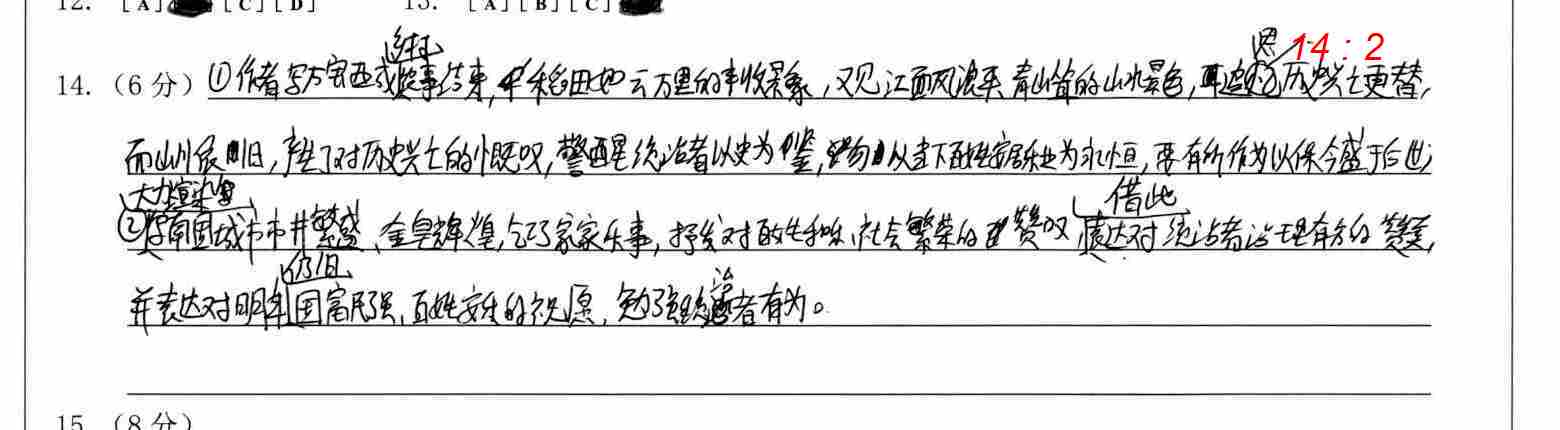 12. [A] [C] [D] 13. [A] [B] [C]
14:2
14.（6分）①作者写方官西成事结束，稻田如云万里的丰收景象，又见江面风浪平青山耸的山水景色，历史兴亡更替，
而山川依旧，产生了对历史兴亡的慨叹，警醒统治者以史为鉴，勿以当下百姓安居乐业为永恒，要有所作为以保今盛于后世
大力渲染 借此
②写南国城市市井繁盛、金阜辉煌，乞巧家家乐事，抒发对政生和、社会繁荣的赞叹，表达对统治者治理有方的赞美，
仍旧
并表达对明年国富民强，百姓安生的祝愿，勉强统治者有为。
15.（8分）